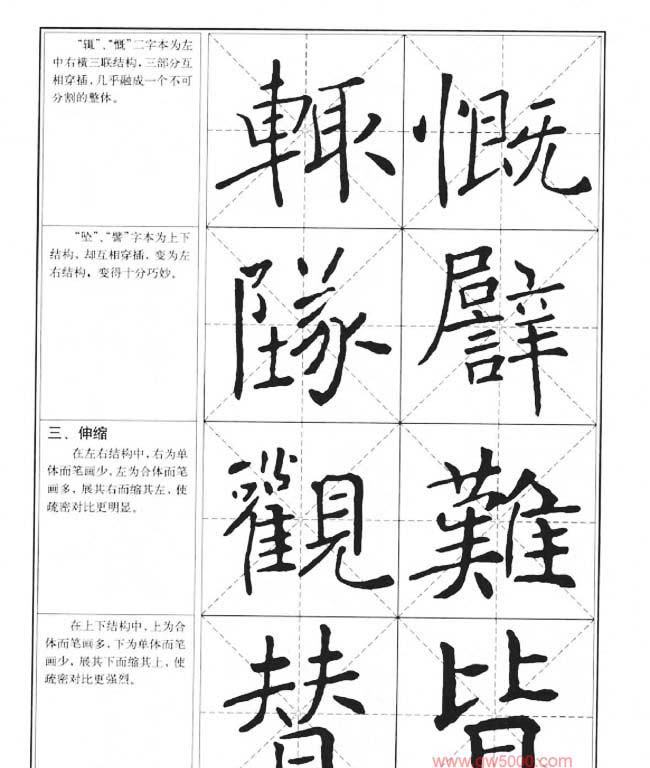 “辄”、“慨”二字本为左
中右横三联结构，三部分互
相穿插，几乎融成一个不可
分割的整体。
輒 慨
“坠”、“譬”字本为上下
结构，却互相穿插，变为左
右结构，变得十分巧妙。
墜 譬
三、伸缩
在左右结构中，右为单
体而笔画少，左为合体而笔
画多，展其右而缩其左，使
疏密对比更明显。
觀 難
在上下结构中，上为合
体而笔画多，下为单体而笔
画少，展其下而缩其上，使
疏密对比更强烈。
替 皆
www.gw5000.com